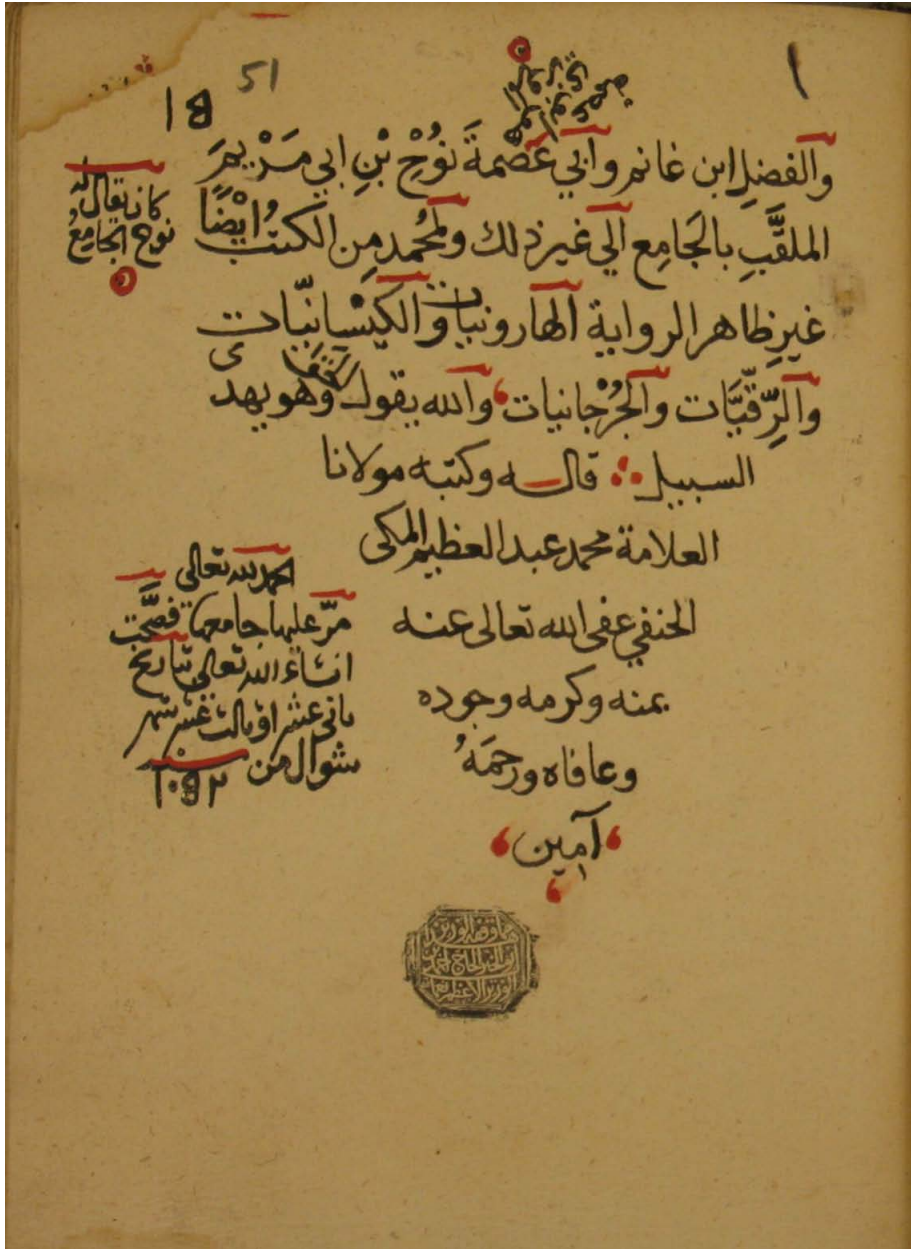 ١
51
٥١
والفضلِ ابن غانم وابي عَصْمةَ نوُحْ بْنِ ابي مَرْيمَ
الملقَّبِ بالجَامِع الي غير ذلك ولمحُمد مِن الكتب ايْضًا
غيرِ ظاهر الرواية الهارونيات والكيْسانيّات
والرِّقيَّات والجُرْجانيات والله يقول الحق وهو يهدى
السبيل قاله وكتبه مولانا
العلامة محمد عبد العظيم المكى
الحنفي عفى الله تعالى عنه
بمنه وكرمه وجوده
وعافاه ورحمَهُ
آمين
كان يقال له
نوح الجامع
الحمد لله تعالى
مرّ عليها جامعها فصحَّت
انشاء الله تعالى بتاريخ
ثانى عشر او ثالث عشر شهر
شوال من